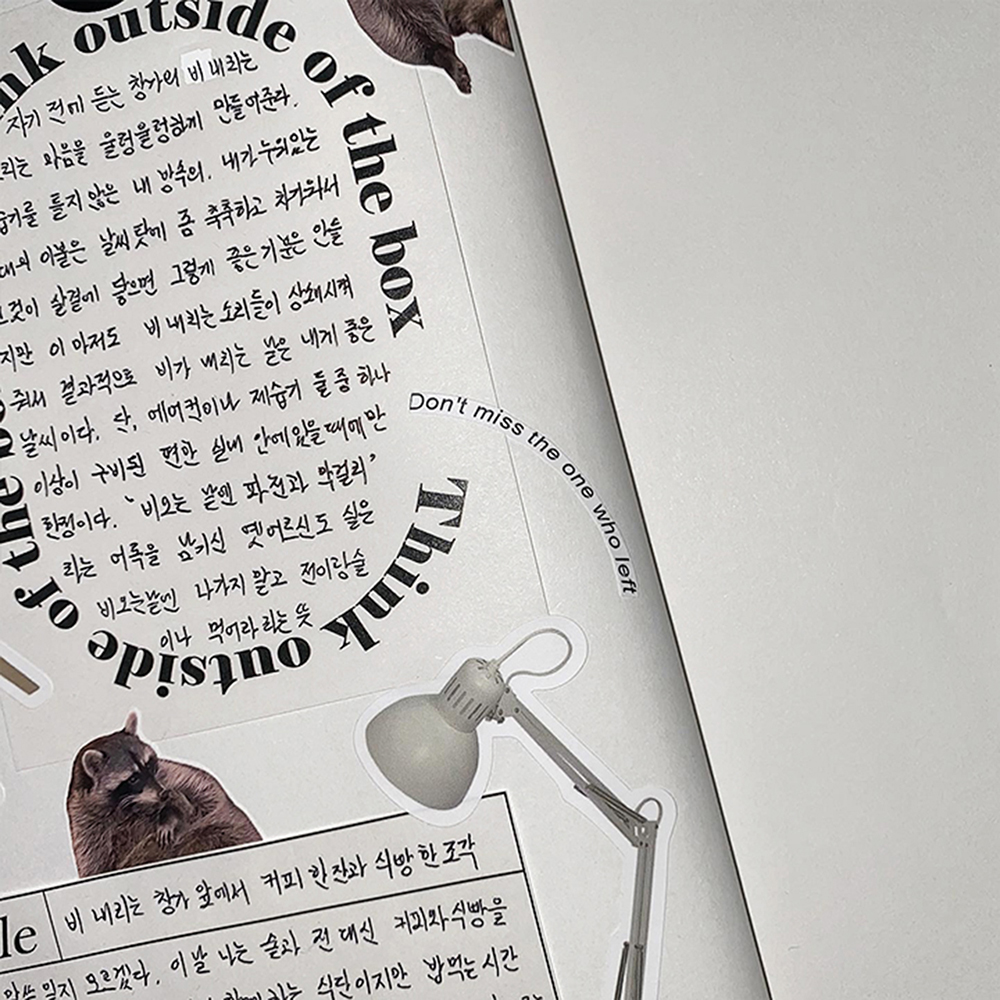 Think outside of the box
Think outside of the box
자기 전에 듣는 창가의 비 내리는
리는 마음을 울렁울렁하게 만들어준다.
틀지 않은 내 방속의. 내가 누워있는
이불은 날씨 탓에 좀 축축하고 차가워서
그것이 살결에 닿으면 그렇게 좋은 기분은 안들
지만 이마저도 비 내리는 소리들이 상쇄시켜
줘서 결과적으로 비가 내리는 날은 내게 좋은
날씨이다. 단, 에어컨이나 제습기 둘 중 하나
이상이 구비된 편한 실내 안에 있을 때에만
한정이다. '비오는 날엔 파전과 막걸리'
라는 어록을 남기신 옛 어르신도 실은
비오는날엔 나가지 말고 전이랑 술
이나 먹어라 라는 뜻
Don't miss the one who left
le
비 내리는 창가 앞에서 커피 한 잔과 식빵 한 조각
모르겠다. 이 날 나는 술과 전 대신 커피와 식빵을
하는 식단이지만 밥 먹는 시간